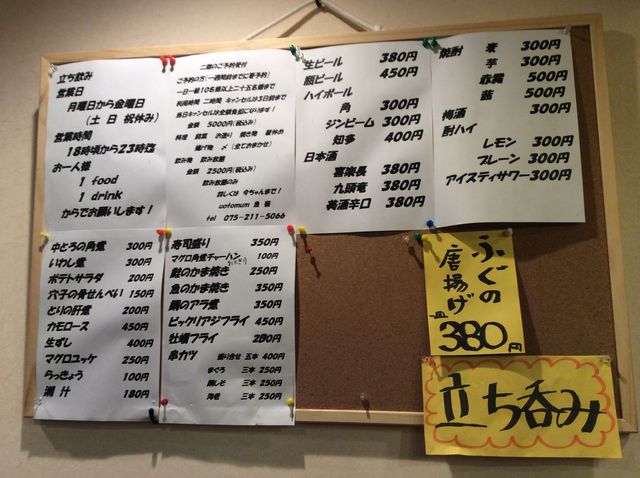 立ち飲み
営業日
月曜日から金曜日
(土 日 祝休み)
営業時間
18時頃から23時迄
お一人様
1 food
1 drink
からでお願いします!
二階のご予約受付
ご予約の方(一週間前までに要予約)
一日一組10名様以上二十五名様まで
利用時間 二時間 キャンセルは3日前まで
当日キャンセルは全額負担になります!
金額 5000円(税込み)
料理 前菜 お造り 焼き物 箸休め
揚げ物 〆(全ておまかせ)
飲み物 飲み放題
金額 2500円(税込み)
飲み放題のみ
詳しくは 今ちゃんまで!
uotomum 魚
tel 075-211-5066
生ビール 380円
瓶ビール 450円
ハイボール
角 300円
ジンビーム 300円
知多 400円
日本酒
喜楽長 380円
九頭竜 380円
美酒辛口 380円
焼酎 麦 300円
芋 300円
赤霧 500円
茜 500円
梅酒 300円
酎ハイ
レモン 300円
プレーン 300円
アイスティサワー 300円
中とろの角煮 300円
いわし煮 300円
ポテトサラダ 200円
穴子の骨せんべい 150円
とりの肝煮 200円
カモロース 450円
生ずし 400円
マグロユッケ 250円
らっきょう 100円
潮汁 180円
寿司盛り 350円
マグロ角煮チャーハン 100円
おにぎり
鮭のかま焼き 250円
魚のかま焼き 350円
鯛のアラ煮 350円
ビックリアジフライ 450円
牡蠣フライ 280円
串カツ 盛り合せ 五本 400円
まぐろ 三本 250円
鶏しそ 三本 250円
海老 三本 250円
ふぐの
唐揚げ
一皿
380円
立ち呑み